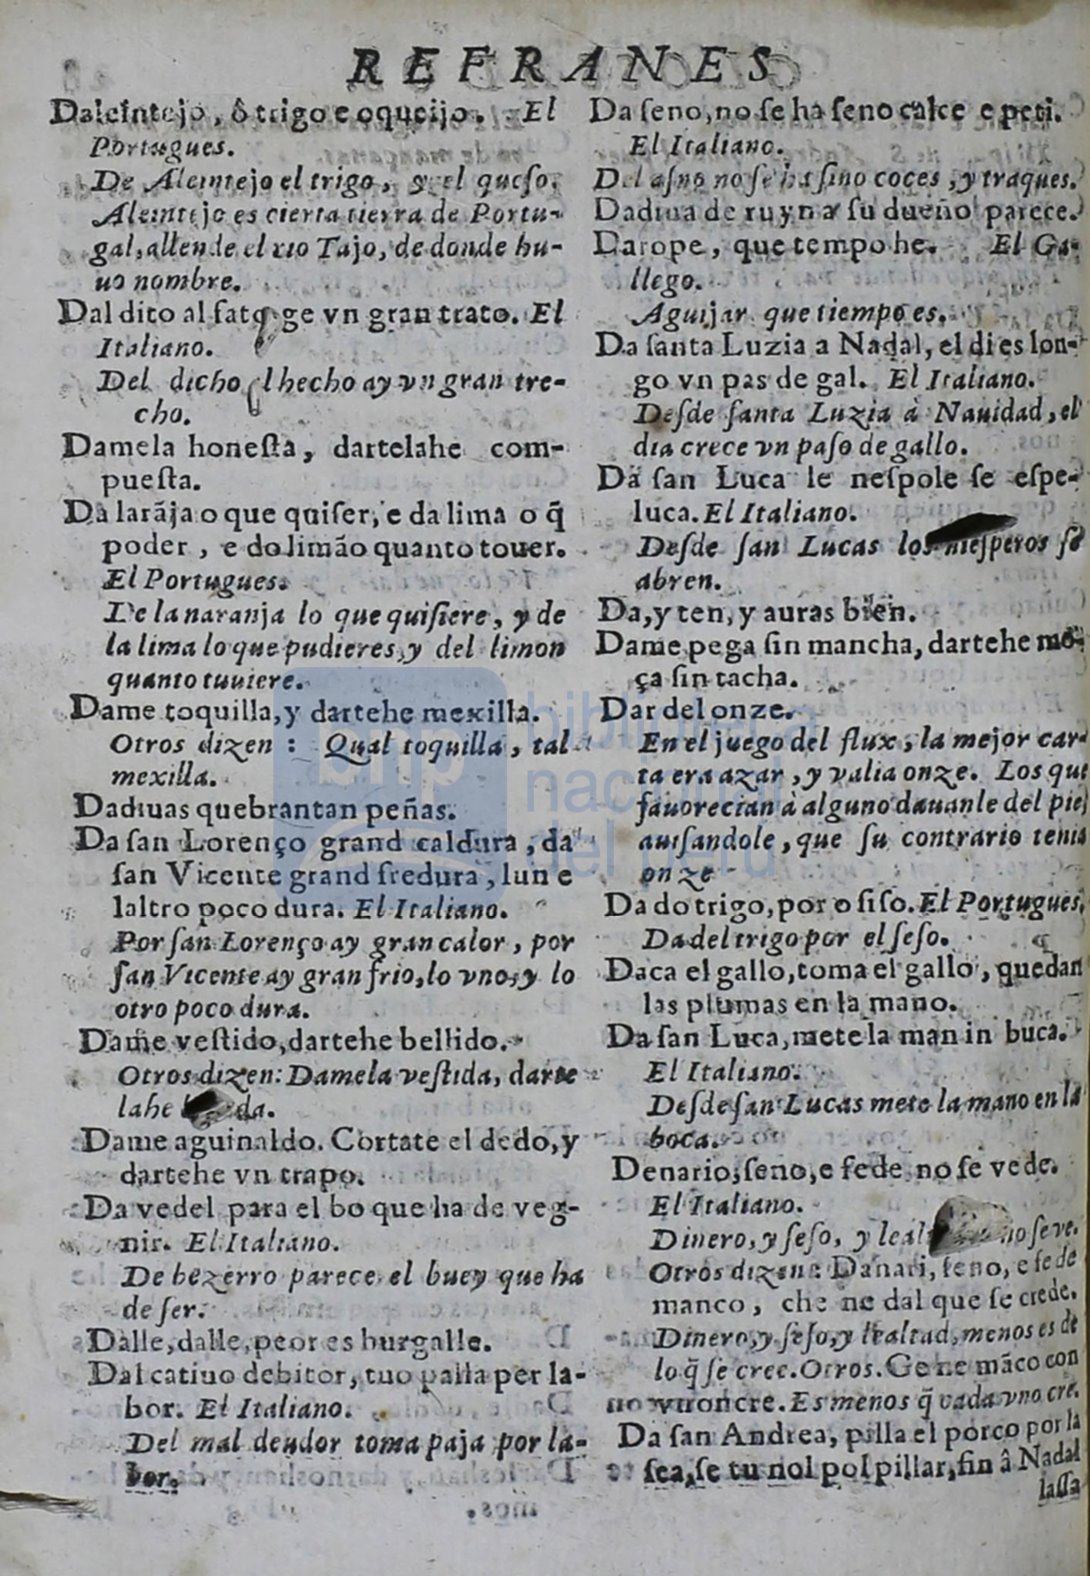 REFRANES
Daleintejo, ô trigo e oqueijo. El
Portugues.
De Aleintejo el trigo, y el queso.
Aleintejo es cierta tierra de Portu-
gal, allende el rio Tajo, de donde hu-
uo nombre.
Dal dito al fatq ge vn gran trato. El
Italiano.
Del dicho lhecho ay vn gran tre-
cho.
Damela honeſta, dartelahe com-
pueſta.
Da larãja o que quiſer, e da lima o q̃
poder, e do limão quanto touer.
El Portugues.
De la naranja lo que quiſiere, y de
la lima lo que pudieres, y del limon
quanto tuuiere.
Dame toquilla, y dartehe mexilla.
Otros dizen: Qual toquilla, tal
mexilla.
Dadiuas quebrantan peñas.
Da ſan Lorenço grand caldura, da
ſan Vicente grand fredura, lun e
laltro poco dura. El Italiano.
Por ſan Lorenço ay gran calor, por
ſan Vicente ay gran frio, lo vno, y lo
otro poco dura.
Dame veſtido, dartehe bellido.
Otros dizen: Damela veſtida, darte
lahe da.
Dame aguinaldo. Cortate el dedo, y
dartehe vn trapo.
Da vedel para el bo que ha de veg-
nir. El Italiano.
De bezerro parece el buey que ha
de ſer.
Dalle, dalle, peor es hurgalle.
Dal catiuo debitor, tuo palla per la-
bor. El Italiano.
Del mal deudor toma paja por la-
bor.
Da ſeno, no ſe ha ſeno calce e peti.
El Italiano.
Del aſno no ſe ha ſino coces, y traques.
Dadiua de ruyn a ſu dueño parece.
Darope, que tempo he. El Ga-
llego.
Aguijar que tiempo es.
Da ſanta Luzia a Nadal, el di es lon-
go vn pas de gal. El Italiano.
Deſde ſanta Luzia à Nauidad, el
dia crece vn paſo de gallo.
Da ſan Luca le neſpole ſe eſpe-
luca. El Italiano.
Deſde ſan Lucas los nieſperos ſe
abren.
Da, y ten, y auras bien.
Dame pega ſin mancha, dartehe mo-
ça ſin tacha.
Dar del onze.
En el juego del flux, la mejor car-
ta era azar, y valia onze. Los que
fauorecian à alguno dauanle del pie,
auiſandole, que ſu contrario tenia
onze
Da do trigo, por o ſiſo. El Portugues.
Da del trigo por el ſeſo.
Daca el gallo, toma el gallo, quedan
las plumas en la mano.
Da ſan Luca, mete la man in buca.
El Italiano.
Deſde ſan Lucas mete la mano en la
boca.
Denario, ſeno, e fede no ſe vede.
El Italiano.
Dinero, y ſeſo, y lealt no ſe ve.
Otros dizen: Danari, ſeno, e fede
manco, che ne dal que ſe crede.
Dinero, y ſeſo, y lealtad, menos es de
lo q̃ ſe cree. Otros. Ge ne mãco con
no vuoncre. Es menos q̃ cada vno cre.
Da ſan Andrea, pilla el porco por la
ſea, ſe tu nol pol pillar, fin â Nadal
laſſa
bnp biblioteca
nacional
del perú